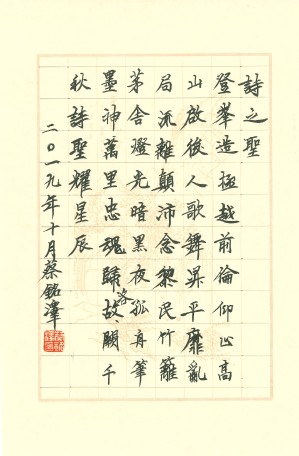 詩之聖
登峯造極越前倫仰止高
山啟後人歌舞昇平靡亂
局流離顛沛念黎民竹籬
茅舍燈光暗黑夜孤舟筆
墨神萬里忠魂歸故闕千
秋詩聖耀星辰
二〇一九年十月蔡銘澤